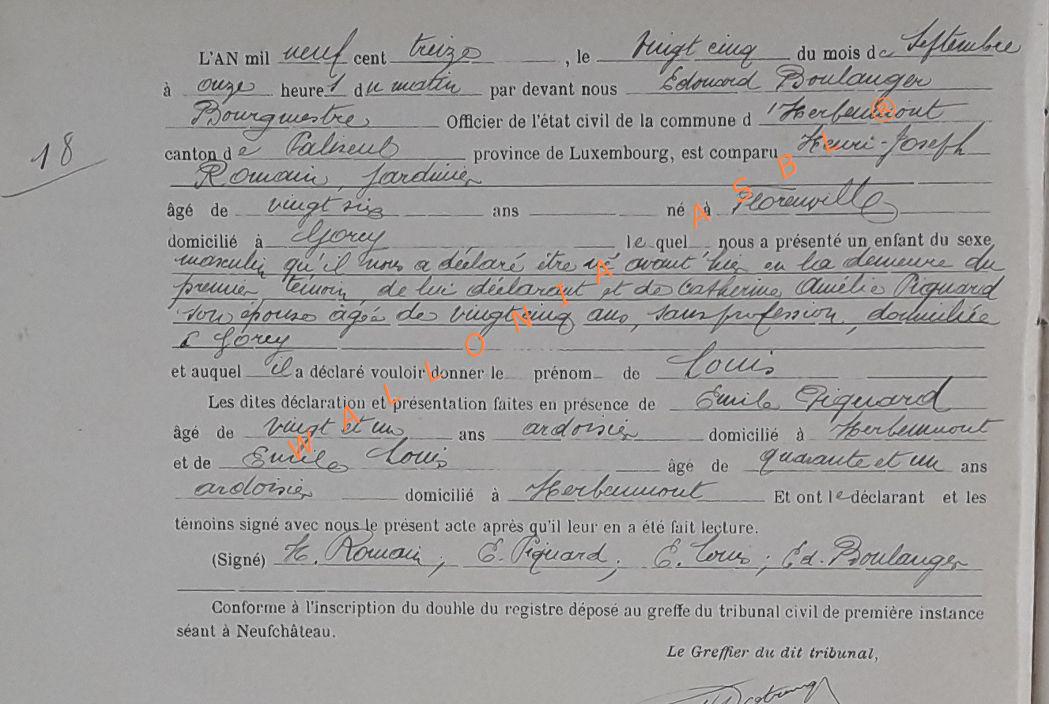 L'AN mil neuf cent treize, le vingt cinq du mois de Septembre
à onze heures du matin par devant nous Edouard Boulanger
Bourgmestre Officier de l'état civil de la commune d'Herbeumont
18
canton de Paliseul province de Luxembourg, est comparu Henri-Joseph
Romain, Jardinier
âgé de vingt six ans né à Florenville
domicilié à Gorcy lequel nous a présenté un enfant du sexe
masculin qu'il nous a déclaré être né avant hier en la demeure du
premier témoin de lui déclarant et de Catherine Amélie Piquard
son épouse âgée de vingt cinq ans, sans profession, domiciliée
à Gorcy
et auquel il a déclaré vouloir donner le prénom de Louis
Les dites déclaration et présentation faites en présence de Emile Piquard
âgé de vingt et un ans ardoisier domicilié à Herbeumont
et de Emile Louis âgé de quarante et un ans
ardoisier domicilié à Herbeumont Et ont le déclarant et les
témoins signé avec nous le présent acte après qu'il leur en a été fait lecture.
(Signé) H. Romain; E. Piquard; E. Louis; Ed. Boulanger
Conforme à l'inscription du double du registre déposé au greffe du tribunal civil de première instance
séant à Neufchâteau.
Le Greffier du dit tribunal,
WALLONIA ASBL @